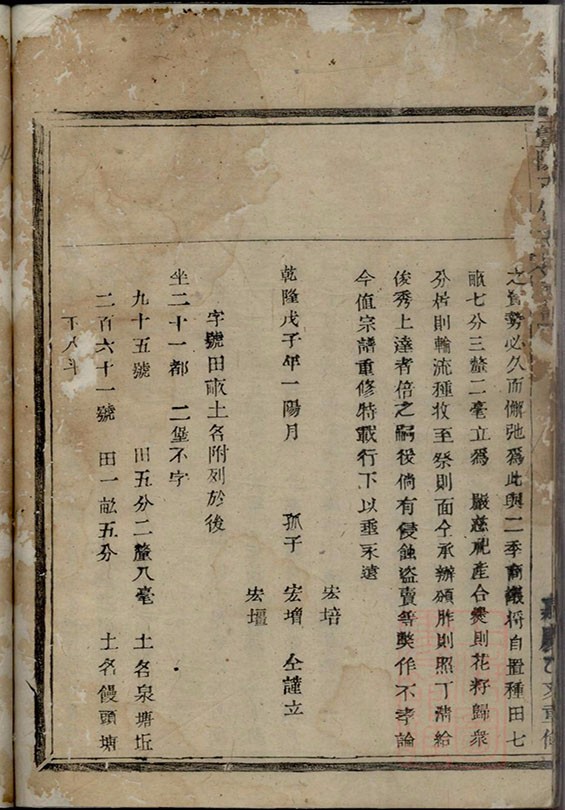 之資勢必久而懈弛爲此與二季商議將自置種田七
畝七分三釐二毫立爲 嚴慈祀產合爨則花籽歸衆
分析則輪流種收至祭則面仝承辦頒胙則照丁清給
俊秀上達者倍之嗣後倘有侵蝕盜賣等獘作不孝論
今值宗譜重修特載行下以垂永遠
宏培
乾隆戊子年一陽月 孤子 宏增 仝謹立
宏壇
字號田畝土名附列於後
坐二十一都 二堡不字
九十五號 田五分二釐八毫 土名泉塘坵
二百六十一號 田一畝五分 土名饅頭塘
下八斗
嘉慶乙亥重修